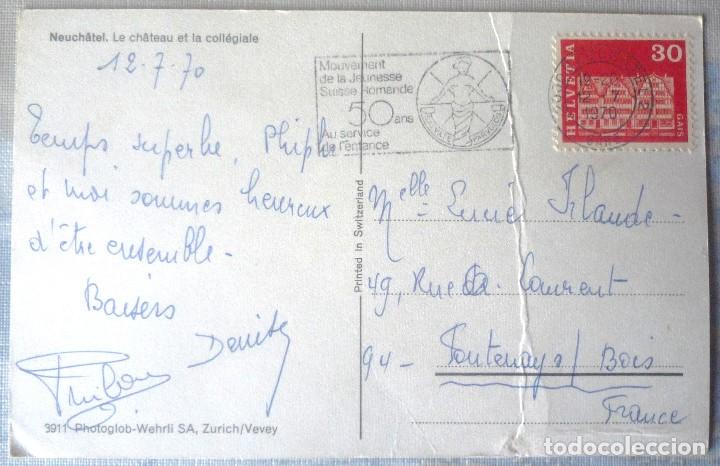 Neuchâtel. Le château et la collégiale
12-7-70
Temps superbe,
et moi sommes heureux
d'être ensemble-
Baisers
Denise
3911 Photoglob-Wehrli SA, Zurich/Vevey
Printed in Switzerland
Mouvement
de la Jeunesse
Suisse Romande
50 ans
Au service
de l'enfance
HELVETIA
30
GAIS
1970
Melle
49, Rue Laurent
94- Fontenay s/ Bois
France
todocoleccion.net